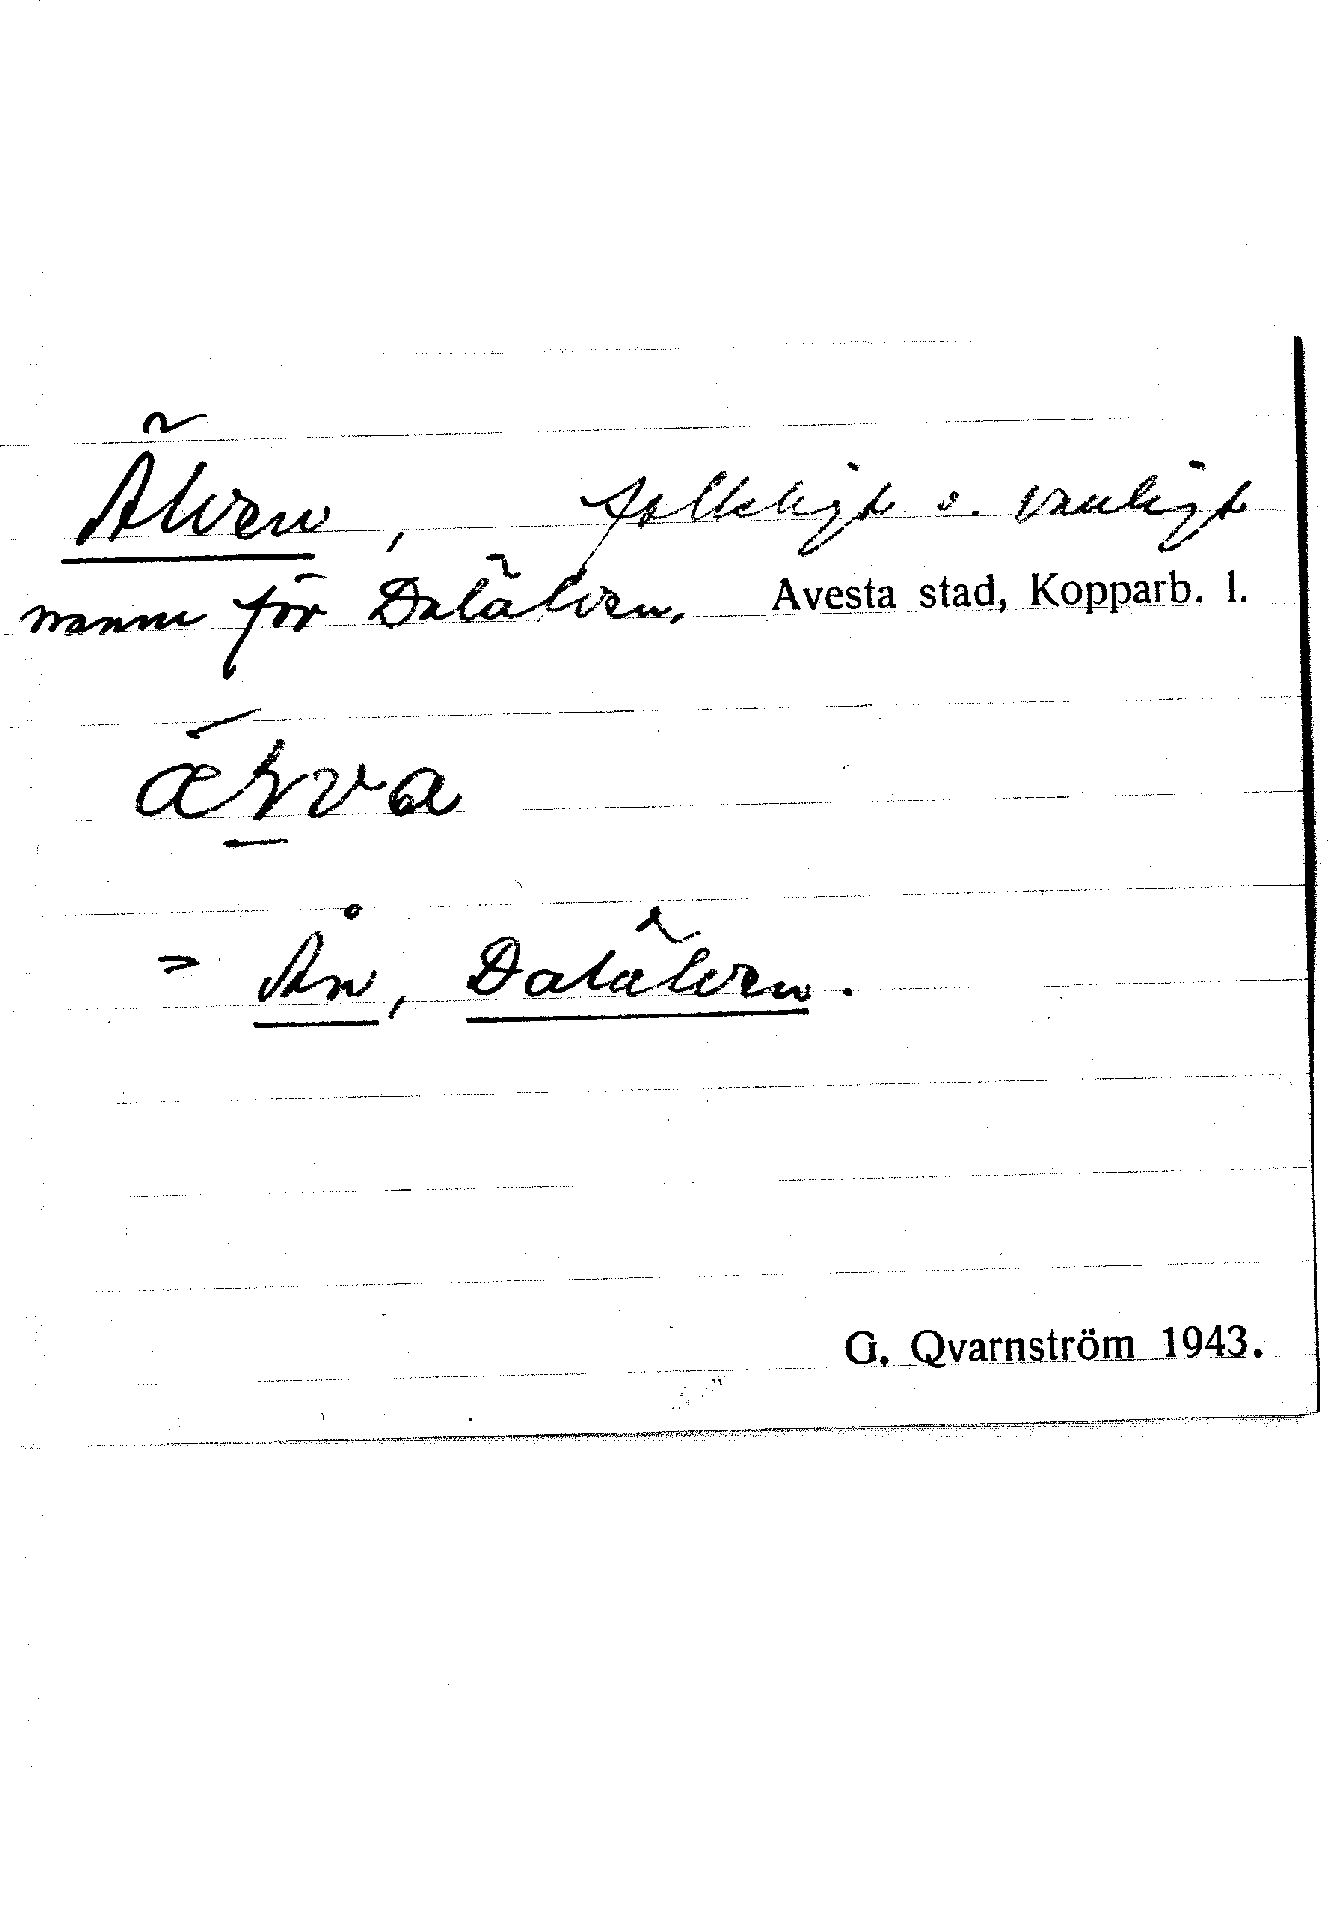 Älven, folkligt o. vanligt
namn för Dalälven. Avesta stad, Kopparb. l.
= Ån, Dalälven.
G. Qvarnström 1943.